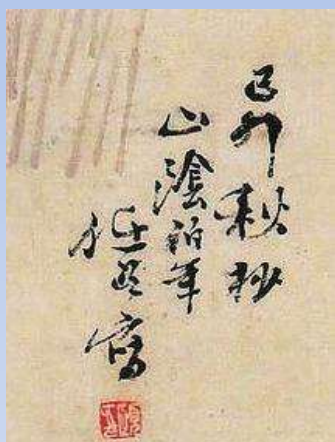 己卯秋杪
山陰伯年
任頤寫